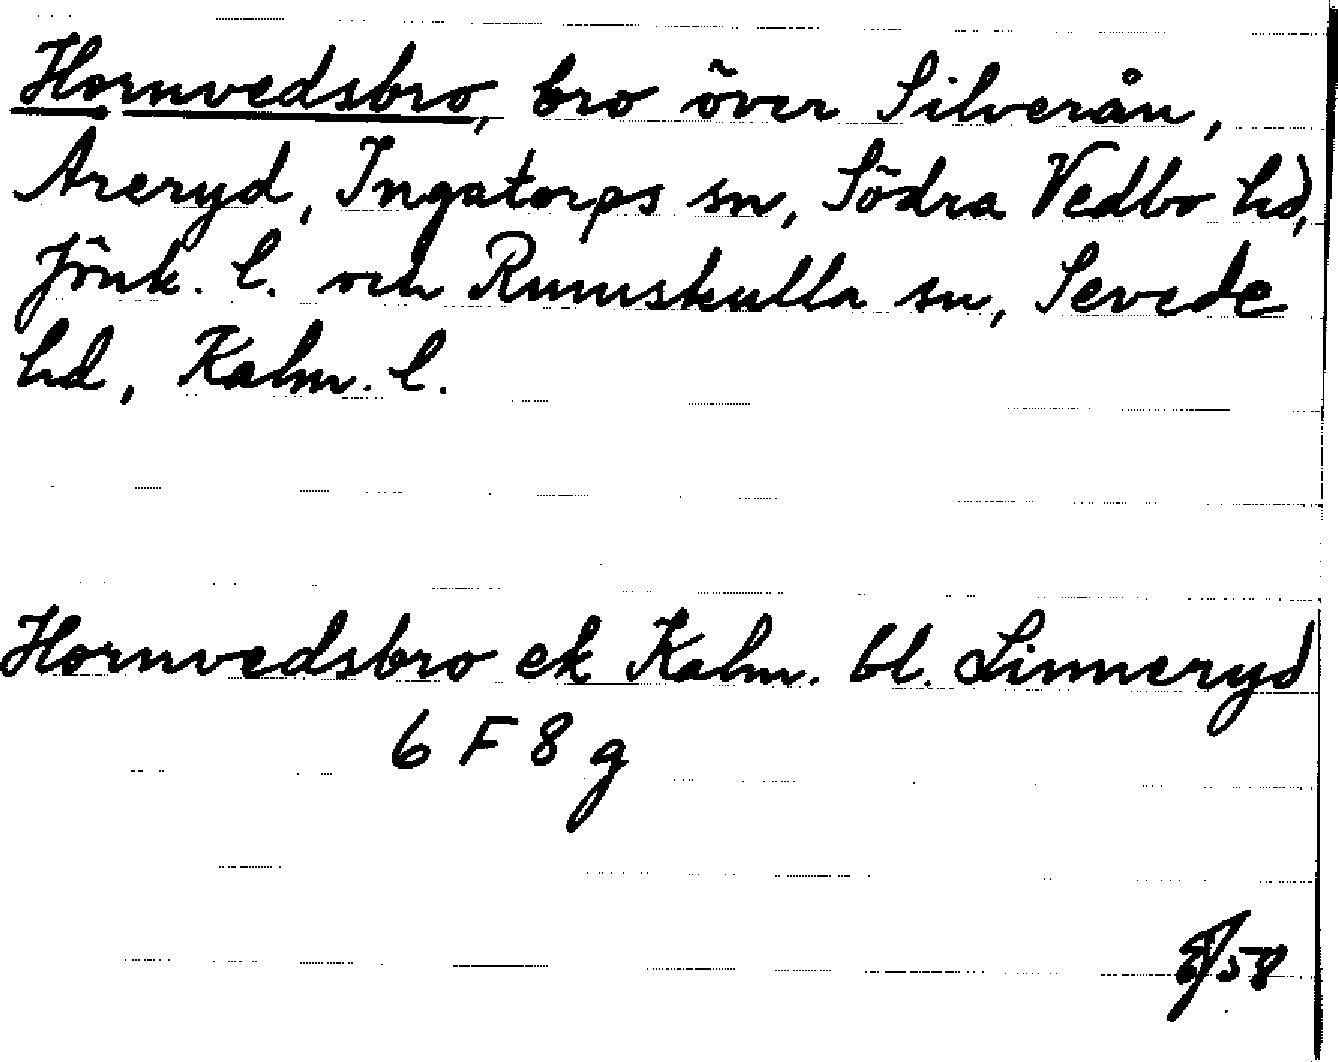 Hornvedsbro, bro över Silverån,
Areryd, Ingatorps sn, Södra Vedbo hd,
Jönk. l. och Rumskulla sn, Sevede
hd, Kalm. l.
Hornvedsbro ek Kalm. bl. Linneryd
6 F 8 g